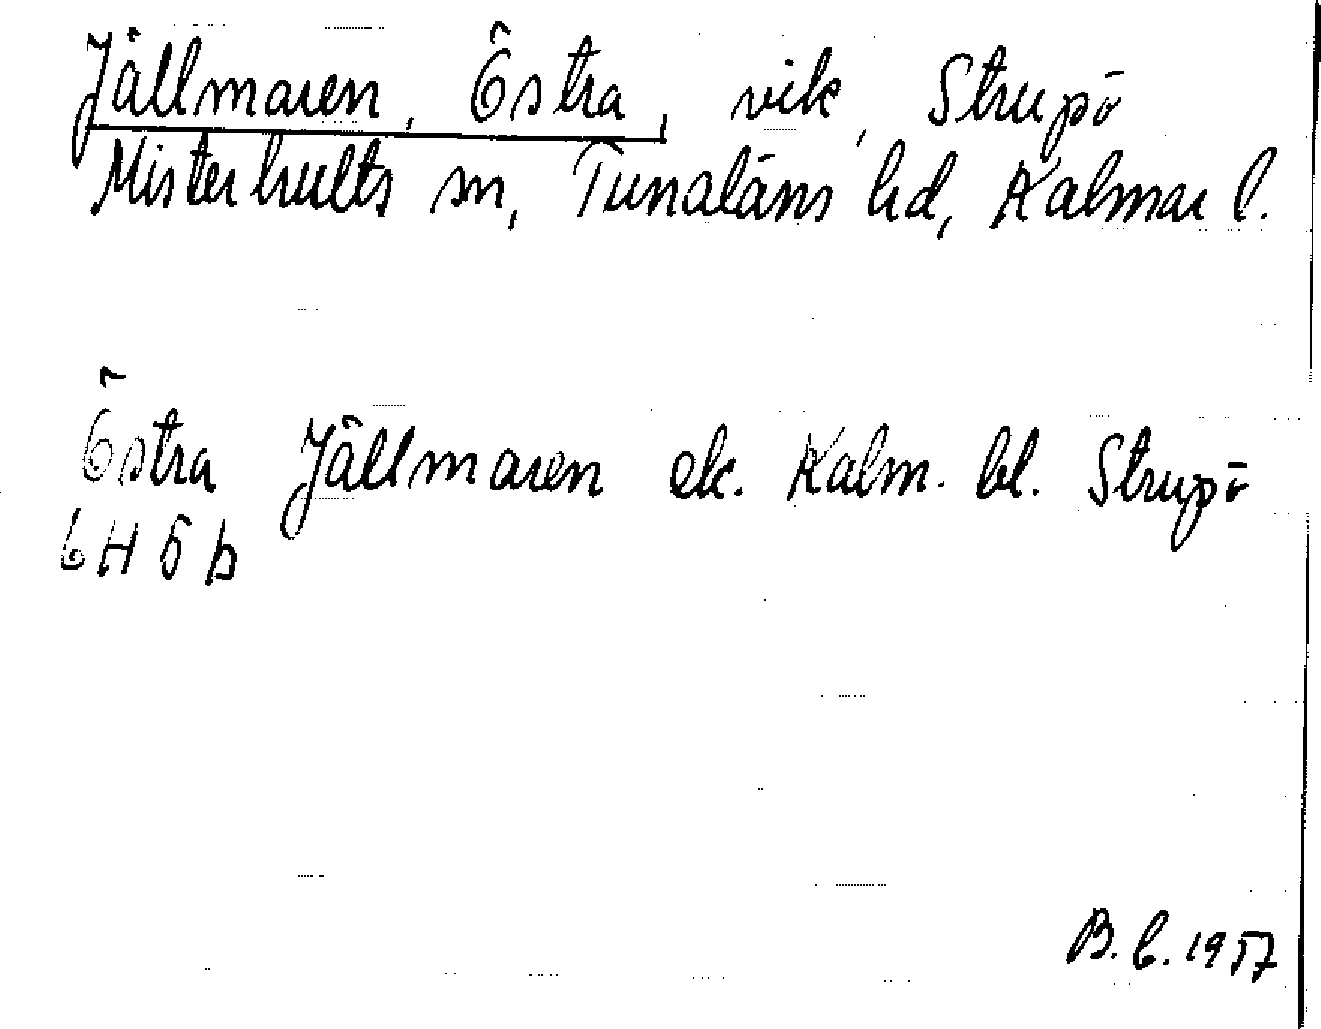 Jällmaren, Östra, vik, Strupö
Misterhults sn, Tunaläns hd, Kalmar l.
Östra Jällmaren ek. Kalm. bl. Strupö
6H 5 b
B.L. 1957